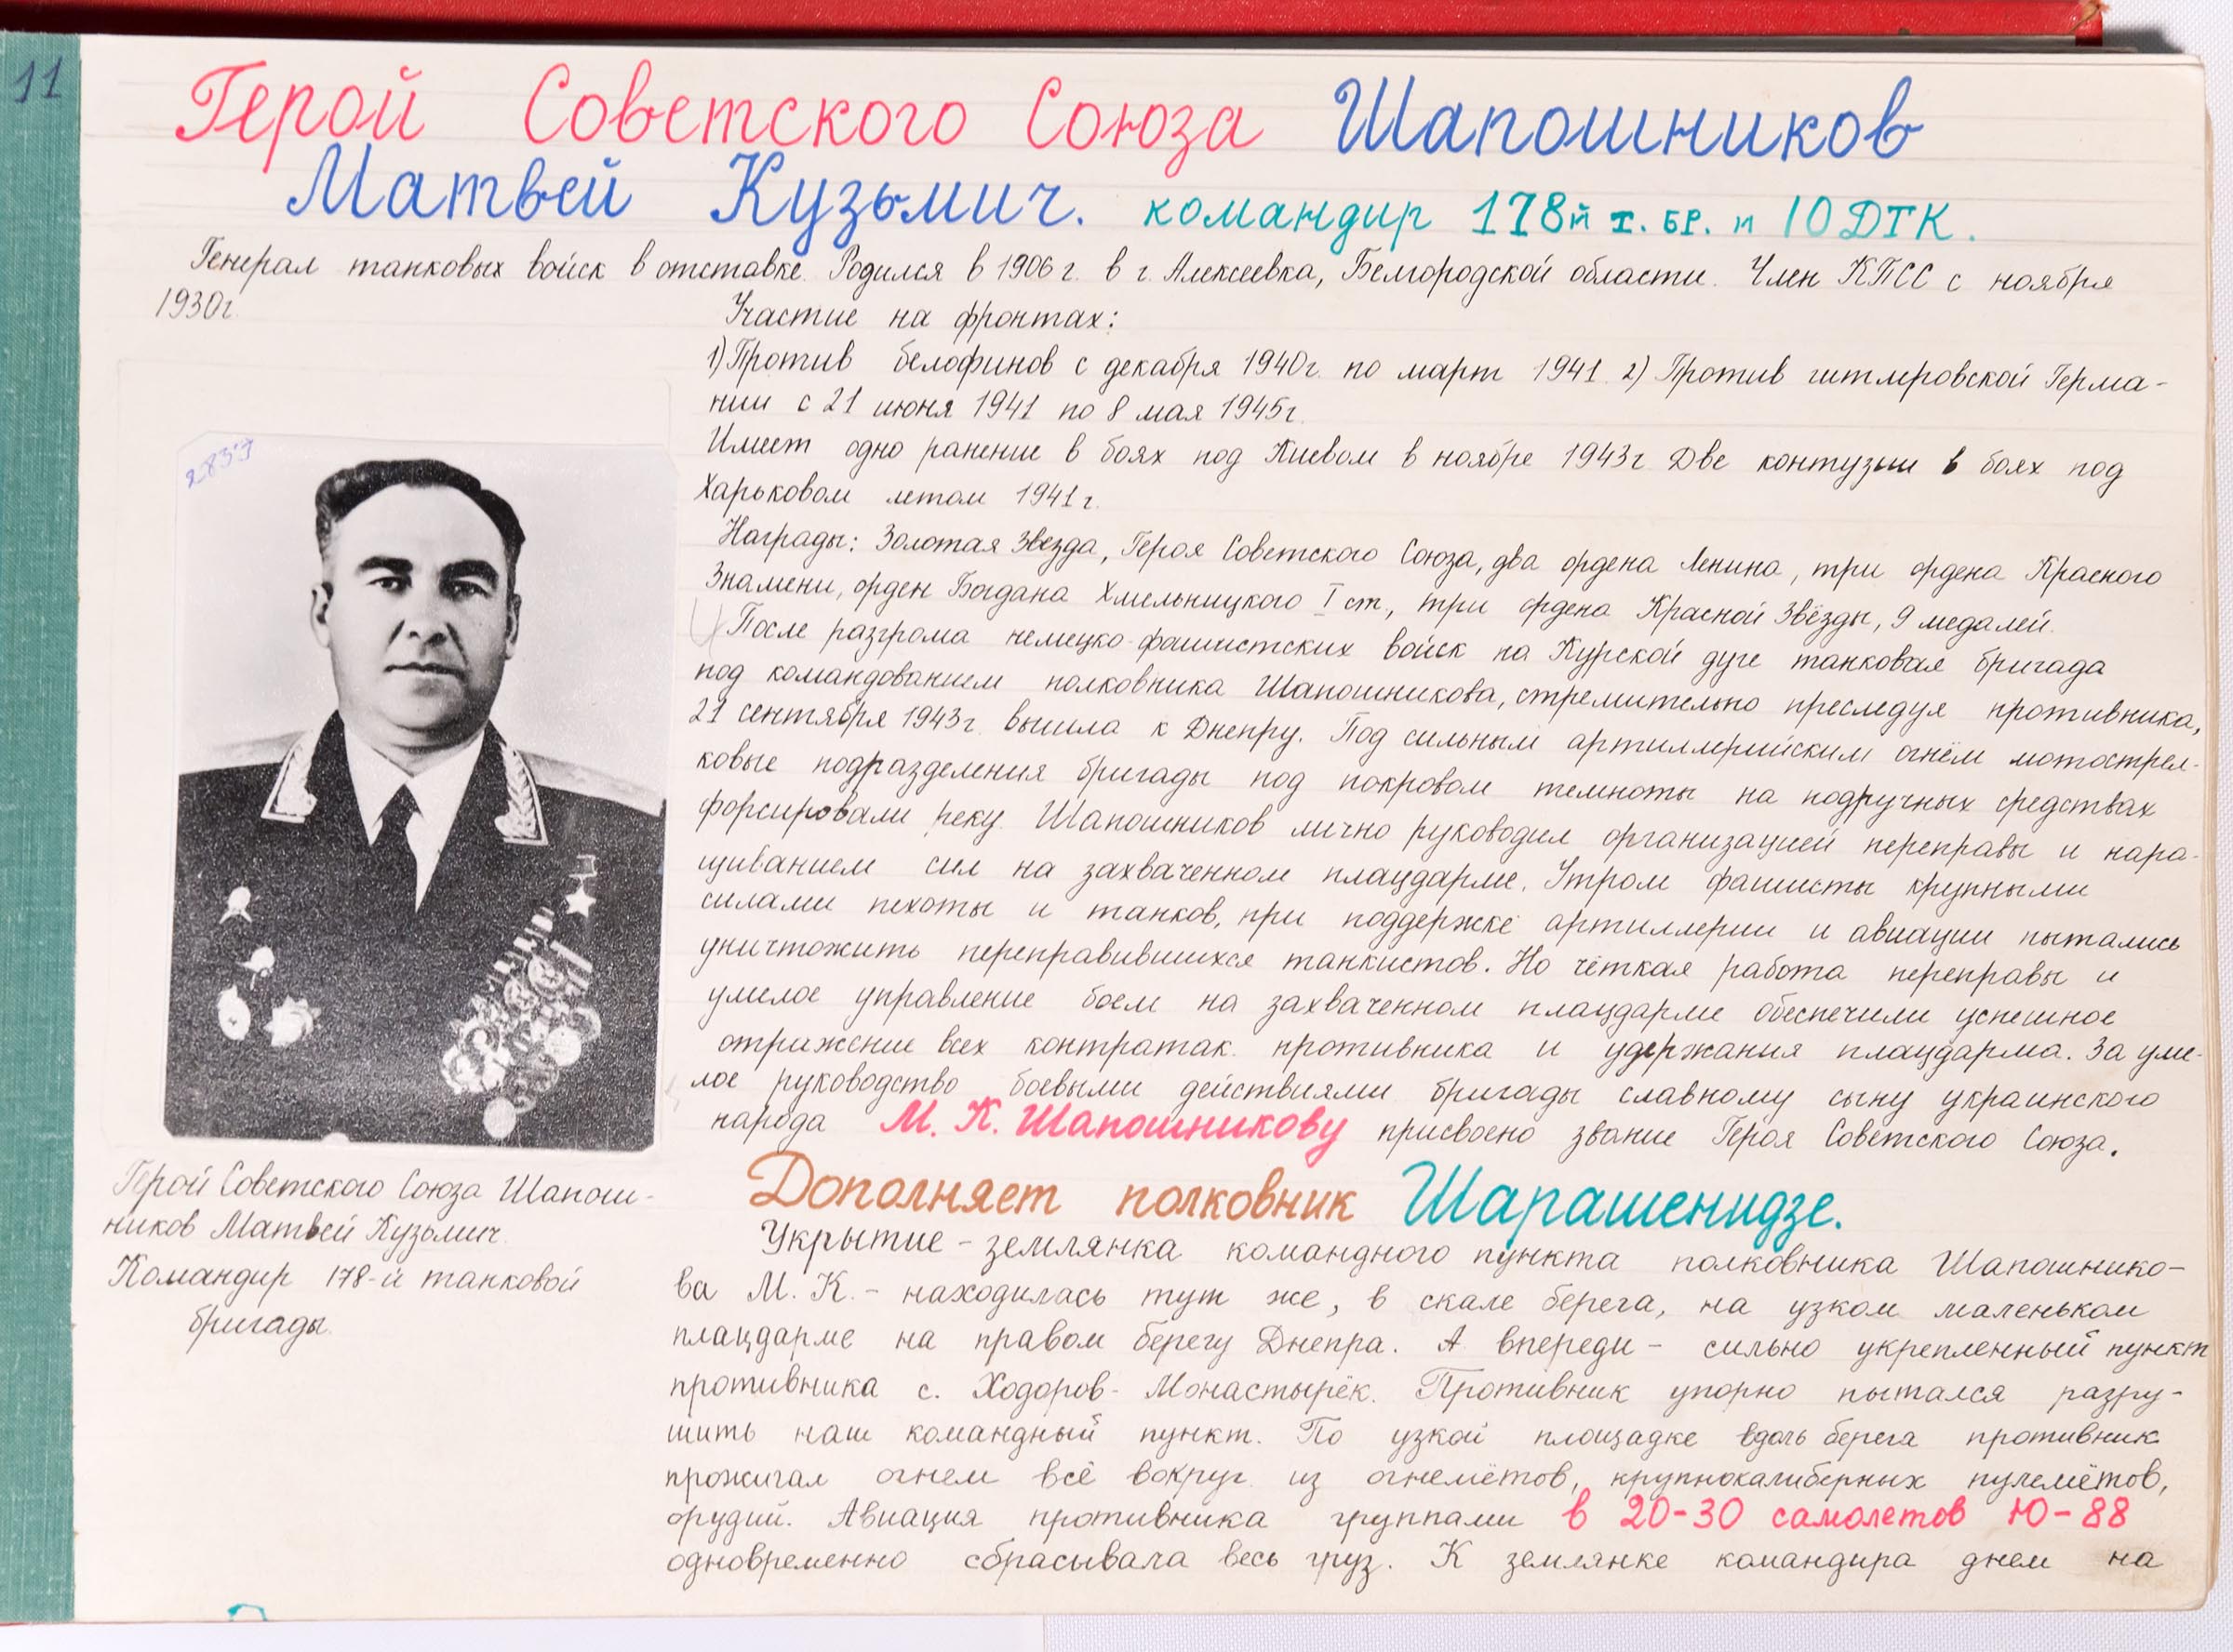 11
Герой Советского Союза Шапошников
Матвей Кузьмич. командир 178й т. бр. и 10 ДТК.
Генерал танковых войск в отставке. Родился в 1906 г. в г. Алексеевка, Белгородской области. Член КПСС с ноября
1930г.
Участие на фронтах:
1) Против белофинов с декабря 1940г. по март 1941. 2) Против гитлеровской Герма-
нии с 21 июня 1941 по 8 мая 1945г.
Имеет одно ранение в боях под Киевом в ноябре 1943г Две контузии в боях под
Харьковом летом 1941 г.
Награды: Золотая Звезда, Героя Советского Союза, два ордена Ленина, три ордена Красного
Знамени, орден Богдана Хмельницкого I ст., три ордена Красной Звёзды, 9 медалей.
После разгрома немецко-фашистских войск на Курской дуге танковая бригада
под командованием полковника Шапошникова, стремительно преследуя противника,
21 сентября 1943г. вышла к Днепру. Под сильным артиллерийским огнём мотострел-
ковые подразделения бригады под покровом темноты на подручных средствах
форсировали реку. Шапошников лично руководил организацией переправы и нара-
щиванием сил на захваченном плацдарме. Утром фашисты крупными
силами пехоты и танков, при поддержке артиллерии и авиации пытались
уничтожить переправившихся танкистов. Но чёткая работа переправы и
умелое управление боем на захваченном плацдарме обеспечили успешное
отражение всех контратак противника и удержания плацдарма. За уме-
лое руководство боевыми действиями бригады славному сыну украинского
народа М. К. Шапошникову присвоено звание Героя Советского Союза.
2837
Герой Советского Союза Шапош-
ников Матвей Кузьмич.
Командир 178-й танковой
бригады.
Дополняет полковник Шарашенидзе.
Укрытие - землянка командного пункта полковника Шапошнико-
ва М. К. - находилась тут же, в скале берега, на узком маленьком
плацдарме на правом берегу Днепра. А впереди - сильно укрепленный пункт
противника с. Ходоров - Монастырёк. Противник упорно пытался разру-
шить наш командный пункт. По узкой площадке вдоль берега противник
прожигал огнем всё вокруг из огнемётов, крупнокалиберных пулемётов,
орудий. Авиация противника группами в 20-30 самолетов Ю-88
одновременно сбрасывала весь груз. К землянке командира днем на